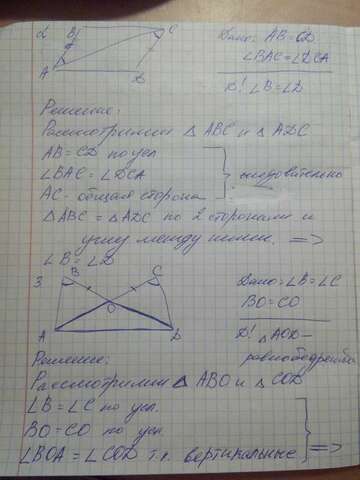 2. B C
Дано: AB=CD
∠BAC=∠DCA
A D
Д! ∠B=∠D
Решение:
Рассмотрим △ABC и △ADC
AB=CD по усл
∠BAC=∠DCA
следовательно
AC - общая сторона
△ABC=△ADC по 2 сторонами и
углу между ними. =>
∠B=∠D
3. B C
Дано: ∠B=∠C
BO=CO
O
A D
Д! △AOD-
равнобедренный
Решение:
Рассмотрим △ABO и △COD
∠B=∠C по усл.
BO=CO по усл.
∠BOA=∠COD т.к. вертикальные =>